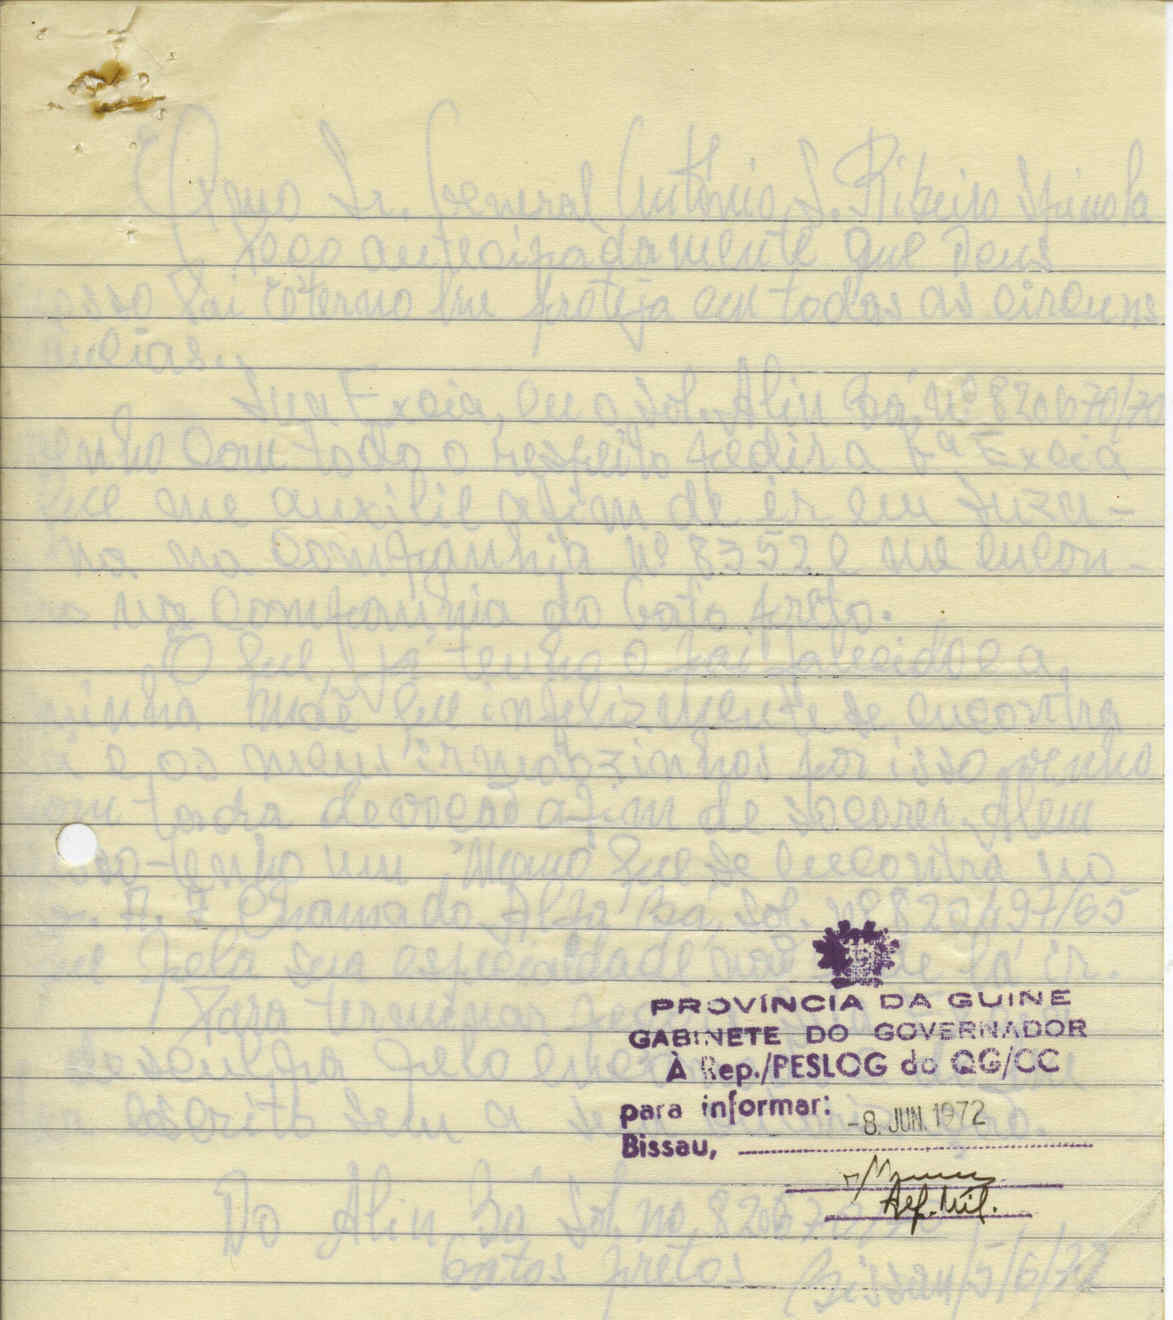 Exmo Sr. General António S. Ribeiro Spinola
Peço antecipadamente que Deus
nosso Pai Eterno lhe proteja em todas as circuns
ncias.
Sua Excia, eu o sol. Alin Bá, nº 820670/70
enho com todo o respeito pedir a Vª Excia
que me auxilie afim de ir em
na na Companhia nº 8352 e me encon-
na Companhia do Gato preto.
O que, já tenho o pai falecido e a
minha mãe que infelizmente se encontra
e os meus irmãozinhos por isso venho
com toda devoção afim de socorrer. Alem
isso tenho um mano que se encontra no
Chamado Alfa Bá, sol. nº 820497/65
que pela sua especialidade não pode lá ir.
Para terminar
desculpa pelo
escrito sem a
Do Alin Bá Sol. no 820670/70
Gatos pretos Bissau/5/6/72
PROVÍNCIA DA GUINÉ
GABINETE DO GOVERNADOR
À Rep./PESLOG do QG/CC
para informar:
-8. JUN. 1972
Bissau,